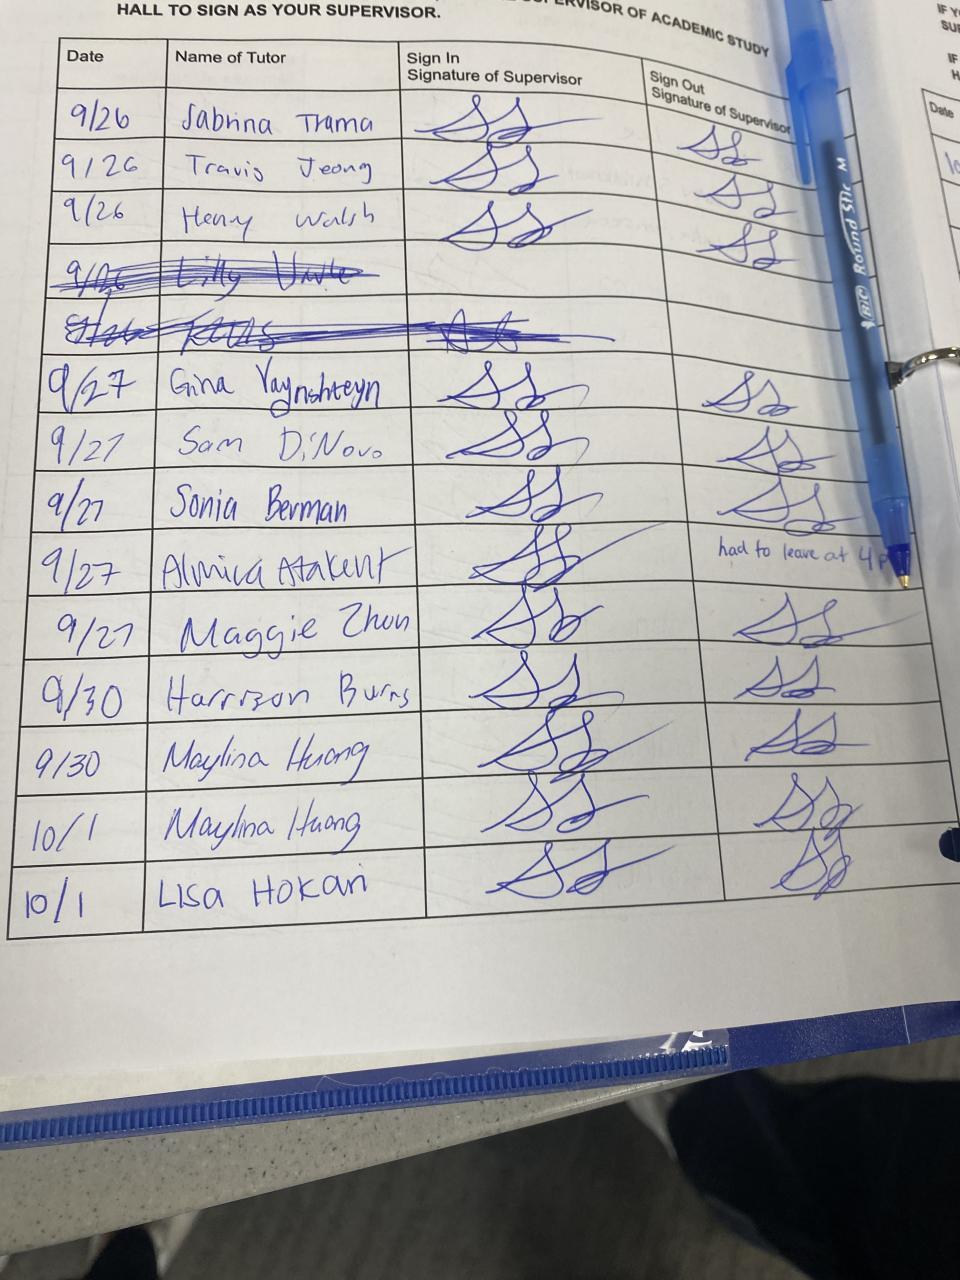 ERVISOR OF ACADEMIC STUDY
HALL TO SIGN AS YOUR SUPERVISOR.
Date Name of Tutor Sign In Signature of Supervisor Sign Out Signature of Supervisor
9/26 Sabrina Trama SS SS
9/26 Travis Jeong SS SS
9/26 Henry Walsh SS SS
9/26 Lilly
9/27 Gina Vaynshteyn SS SS
9/27 Sam DiNovo SS SS
9/27 Sonia Berman SS SS
9/27 Almica Atakent SS had to leave at 4 p
9/27 Maggie Zhou SS SS
9/30 Harrison Burns SS SS
9/30 Maylina Huang SS SS
10/1 Maylina Huang SS SS
10/1 Lisa Hokari SS SS
BIC Round Stic M
IF Y
SU
IF
H
Date